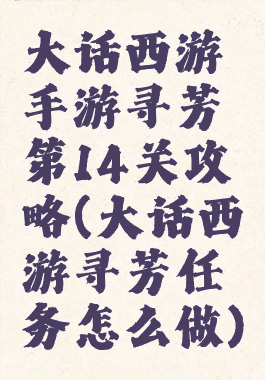 大话西游
手游寻芳
第14关攻
略(大话西
游寻芳任
务怎么做)